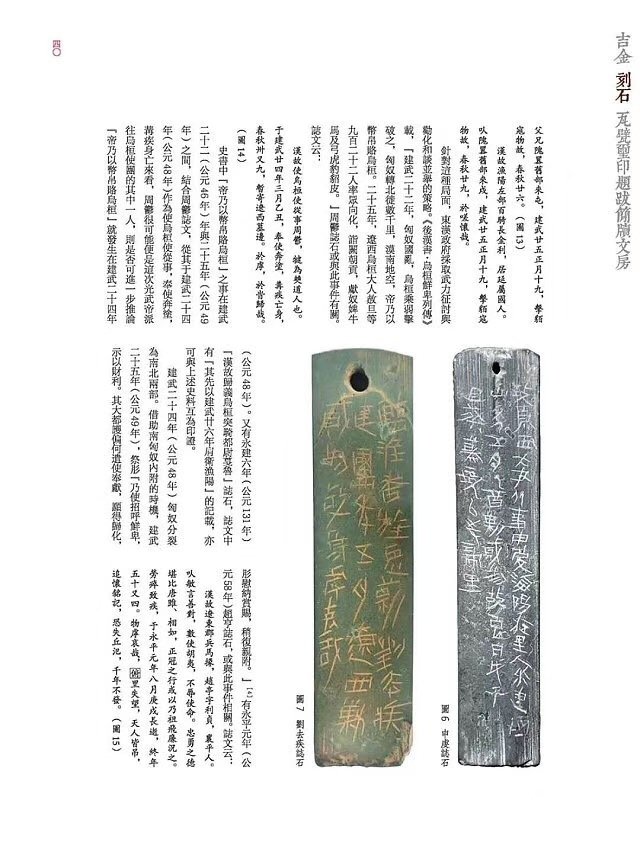 吉金 刻石 瓦甓 璽印 題跋 簡牘 文房
四〇
父兄隗囂舊部朱屯，建武廿五正月十九，擊貊
寇物故，春秋廿六。（圖13）
漢故漁陽左部百騎長金利，居延屬國人。
㕥隗囂舊部朱戍，建武廿五正月十九，擊貊寇
物故，春秋廿九，於嗟懷哉。
針對這種局面，東漢政府採取武力征討與
勸化和談並舉的策略。《後漢書·烏桓鮮卑列傳》
載，「建武二十二年，匈奴國亂，烏桓乘弱擊
破之，匈奴轉北徙數千里，漠南地空，帝乃以
幣帛賂烏桓。二十五年，遼西烏桓大人郝旦等
九百二十二人率眾向化，詣闕朝貢，獻奴婢牛
馬及弓虎豹貂皮。」周鬱誌石或與此事件有關。
誌文云：
漢故使烏桓使從事周鬱，犍為僰道人也。
于建武廿四年三月乙丑，奉使奔塗，溝疾亡身，
春秋卅又九，暫寄遼西墓邊。於序，於皆歸哉。
（圖14）
史書中「帝乃以幣帛賂烏桓」之事在建武
二十二（公元46年）年與二十五年（公元49
年）之間，結合周鬱誌文，從其于建武二十四
年（公元48年）作為使烏桓使從事，奉使奔塗，
溝疾身亡來看，周鬱很可能便是這次光武帝派
往烏桓使團的其中一人，則是否可進一步推論
「帝乃以幣帛賂烏桓」就發生在建武二十四年
（公元48年）。又有永建六年（公元131年）
「漢故歸義烏桓突騎都尉墓魯」誌石，誌文中
有「其先以建武廿六年肩衛漁陽」的記載，亦
可與上述史料互為印證。
建武二十四年（公元48年）匈奴分裂
為南北兩部。借助南匈奴內附的時機，建武
二十五年（公元49年），祭肜「乃使招呼鮮卑，
示以財利。其大都護偏何遣使奉獻，願得歸化，
肜慰納賞賜，稍復親附。」有永平元年（公
元58年）趙亭誌石，或與此事件相關。誌文云：
漢故遼東郡兵馬掾，趙亭字利貞，襄平人。
㕥敏言善對，數使胡夷，不辱使命。忠勇之德
堪比唐雎、相如，正冠之行或以乃祖飛廉況之。
勞瘁致疾，于永平元年八月庚戌長逝，終年
五十又四。物序哀哉，里失望，天人皆吊，
追懷銘記，恐失丘汜，千年不發。（圖15）
圖6 申虔誌石
圖7 劉去疾誌石